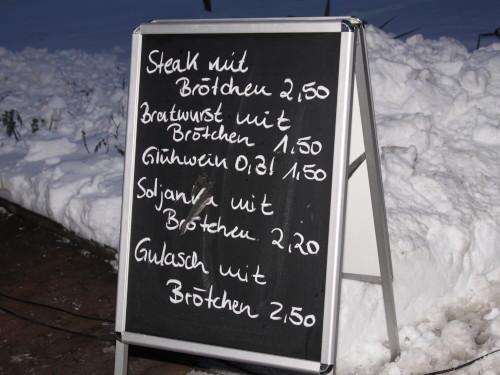 Steak mit
Brötchen 2,50
Bratwurst mit
Brötchen 1,50
Glühwein 0,3l 1,50
Soljanka mit
Brötchen 2,20
Gulasch mit
Brötchen 2,50